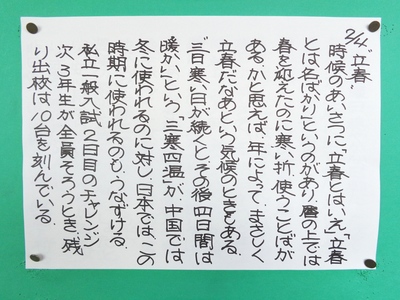 2/4 "立春"
時候のあいさつに、「立春とはいえ」「立春
とは名ばかり」というのがあり、暦の上では
春を迎えたのに寒い折、使うことばが
ある。かと思えば、年によって、まさしく
立春だなあという気候のときもある。
三日寒い日が続くと、その後四日間は
暖かい」という「三寒四温」が、中国では
冬に使われるのに対し、日本では、この
時期に使われるのも、うなずける。
私立一般入試2日目のチャレンジ
次、3年生が全員そろうとき、残
り出校は、10台を刻んでいる。